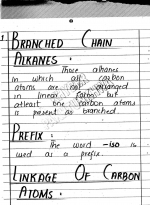 1 BRANCHED CHAIN
ALKANES :
Those alkanes
in which all carbon
atoms are not arranged
in linear form but
atleast one carbon atoms
is present as branched.
PREFIX :
The word -iso is
used as a prefix.
LINKAGE OF CARBON
ATOMS :